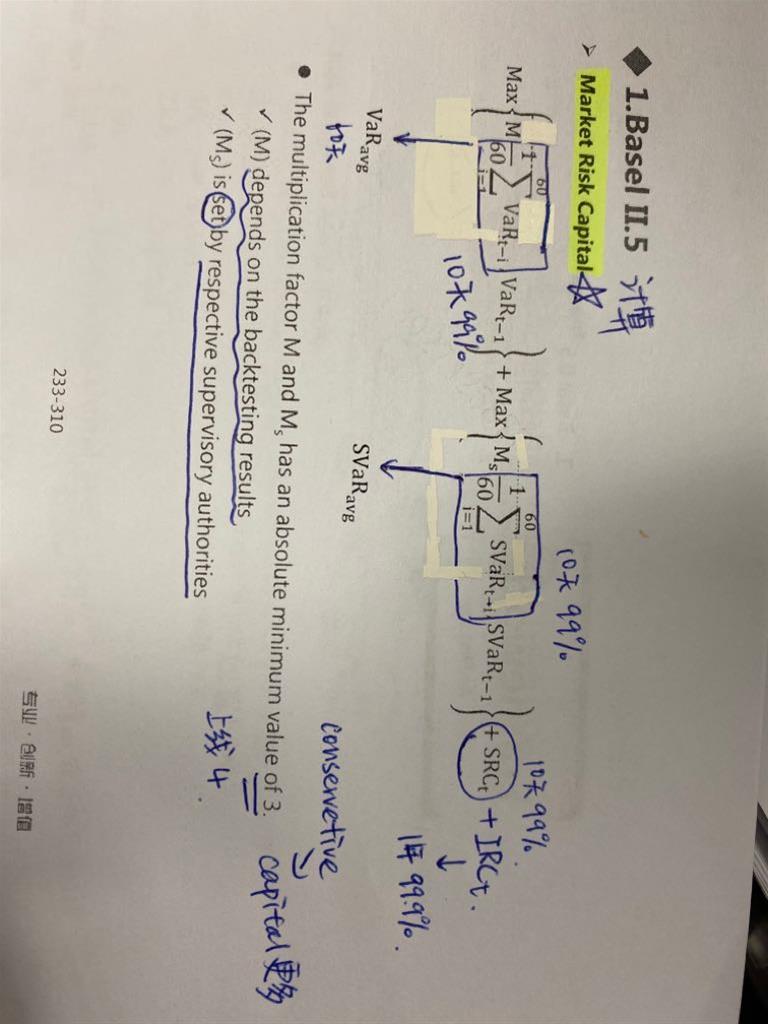 ◆ 1.Basel II.5 计算
➢ Market Risk Capital ☆
10天 99%
10天 99%.
Max { M 1/60 ∑_{i=1}^{60} VaR_{t−i}, VaR_{t−1} } + Max { M_s 1/60 ∑_{i=1}^{60} SVaR_{t−i}, SVaR_{t−1} } + SRC_t + IRC_t.
10天 99%
1年 99.9%.
VaR_{avg}
SVaR_{avg}
10天
conservetive
● The multiplication factor M and M_s has an absolute minimum value of 3.
capital 更多
✓ (M) depends on the backtesting results
✓ (M_S) is set by respective supervisory authorities
上线 4.
233-310
专业 · 创新 · 增值